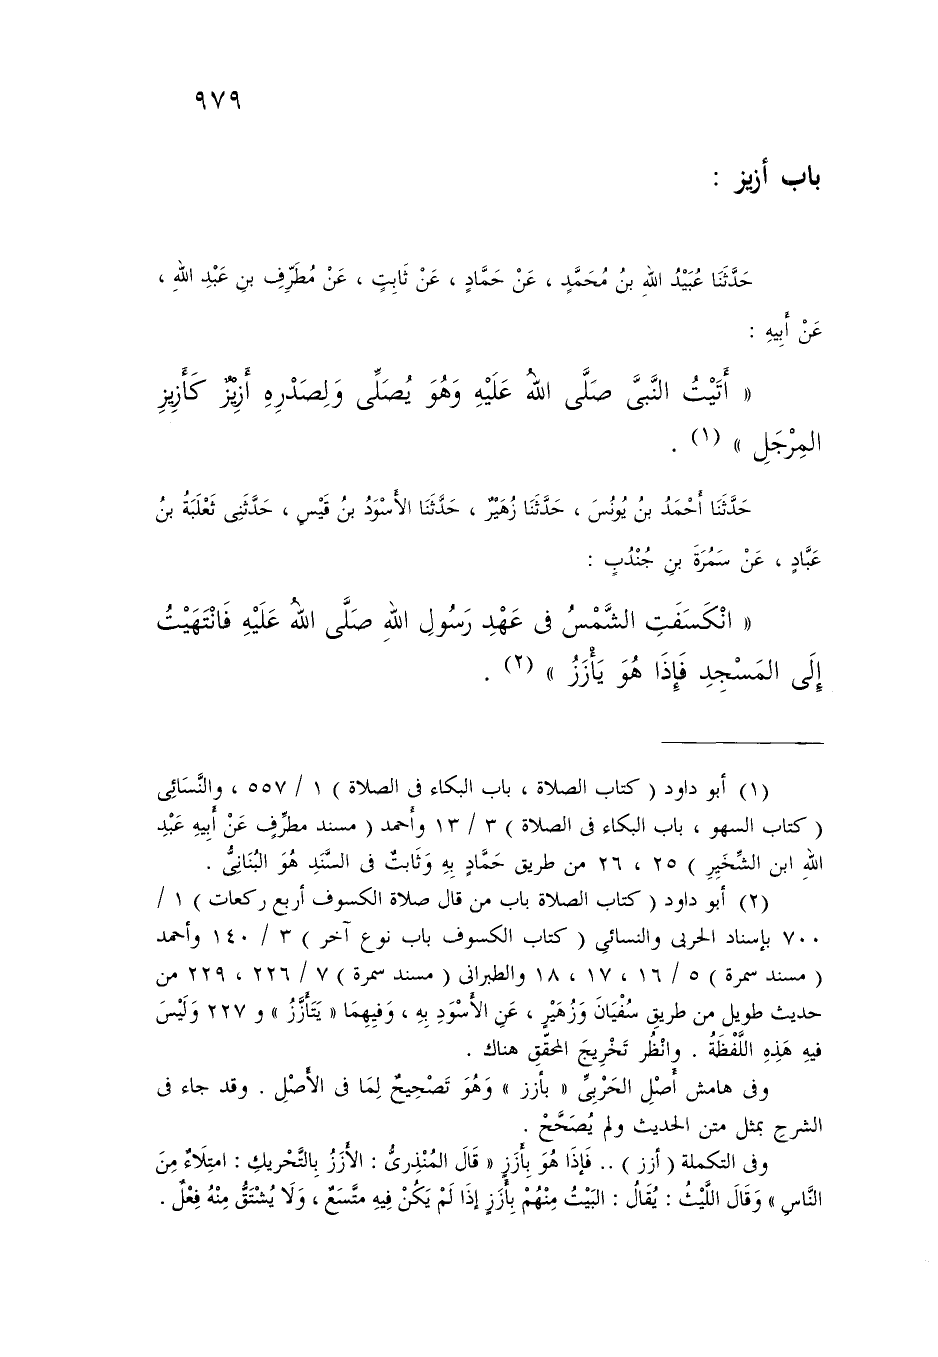 ٩٧٩
باب أزيز :
حَدَّثَنَا عُبَيْدُ اللهِ بنُ مُحَمَّدٍ ، عَنْ حَمَّادٍ ، عَنْ ثَابِتٍ ، عَنْ مُطَرِّفِ بنِ عَبْدِ اللهِ ،
عَنْ أَبِيهِ :
« أَتَيْتُ النَّبِىَّ صَلَّى اللهُ عَلَيْهِ وَهُوَ يُصَلِّى وَلِصَدْرِهِ أَزِيْزٌ كَأَزِيزِ
المِرْجَلِ » (١) .
حَدَّثَنَا أَحْمَدُ بنُ يُونُسَ ، حَدَّثَنَا زُهَيْرٌ ، حَدَّثَنَا الأَسْوَدُ بنُ قَيْسٍ ، حَدَّثَنِى ثَعْلَبَةُ بنُ
عَبَّادٍ ، عَنْ سَمُرَةَ بنِ جُنْدُبٍ :
« انْكَسَفَتِ الشَّمْسُ فى عَهْدِ رَسُولِ اللهِ صَلَّى اللهُ عَلَيْهِ فَانْتَهَيْتُ
إِلَى المَسْجِدِ فَإِذَا هُوَ يَأْزَزُ » (٢) .
(١) أبو داود ( كتاب الصلاة ، باب البكاء فى الصلاة ) ١ / ٥٥٧ ، والنَّسَائِى
( كتاب السهو ، باب البكاء فى الصلاة ) ٣ / ١٣ وأحمد ( مسند مطرِّف عَنْ أَبِيهِ عَبْدِ
اللهِ ابن الشِّخِيرِ ) ٢٥ ، ٢٦ من طريق حَمَّادٍ بِهِ وَثَابتٌ فى السَّنَدِ هُوَ البُنَانِىُّ .
(٢) أبو داود ( كتاب الصلاة باب من قال صلاة الكسوف أربع ركعات ) ١ /
٧٠٠ بإسناد الحربى والنسائي ( كتاب الكسوف باب نوع آخر ) ٣ / ١٤٠ وأحمد
( مسند سمرة ) ٥ / ١٦ ، ١٧ ، ١٨ والطبرانى ( مسند سمرة ) ٧ / ٢٢٦ ، ٢٢٩ من
حديث طويل من طريقِ سُفْيَانَ وَزُهَيْرٍ ، عَنِ الأَسْوَدِ بِهِ ، وَفِيهِمَا « يَتَأَزَّزُ » و ٢٢٧ وَلَيْسَ
فيه هَذِهِ اللَّفْظَةُ . وانْظُر تَخْرِيجَ المحقّقِ هناك .
وفى هامش أَصْلِ الحَرْبِىِّ « بأزز » وَهُوَ تَصْحِيحٌ لِمَا فى الأَصْلِ . وقد جاء فى
الشرحِ بمثل متن الحديث ولم يُصَحَّحْ .
وفى التكملة ( أزز ) .. فَإِذَا هُوَ بِأَزَزٍ « قَالَ المُنْذِرىُّ : الأَزَزُ بِالتَّحْريكِ : امتِلَاءٌ مِنَ
النَّاسِ » وَقَالَ اللَّيْثُ : يُقَالُ : البَيْتُ مِنْهُمْ بِأَزَزٍ إِذَا لَمْ يَكُنْ فِيهِ متَّسَعٌ ، وَلَا يُشْتَقُّ مِنْهُ فِعْلٌ .